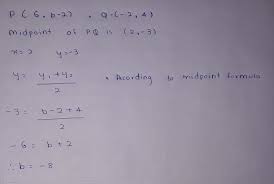 P ( 6, b-2) , Q (-2, 4)
midpoint of PQ is (2, -3)
x = 2 y = -3
y = y₁ + y₂ / 2 • According to midpoint formula
-3 = b - 2 + 4 / 2
-6 = b + 2
∴ b = -8